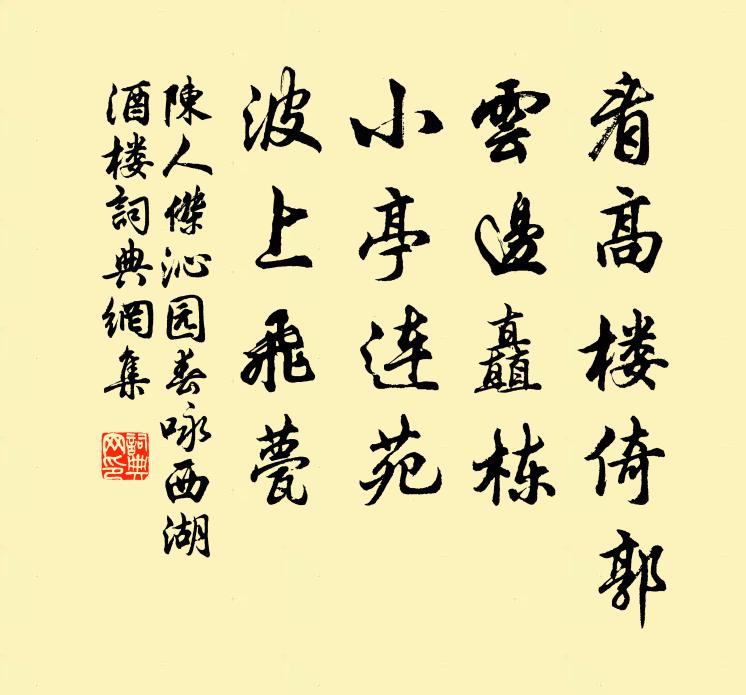 看高楼倚郭
雲邊矗栋
小亭连苑
波上飛甍
陳人傑沁园春咏西湖
酒楼詞典網集
詞典网印